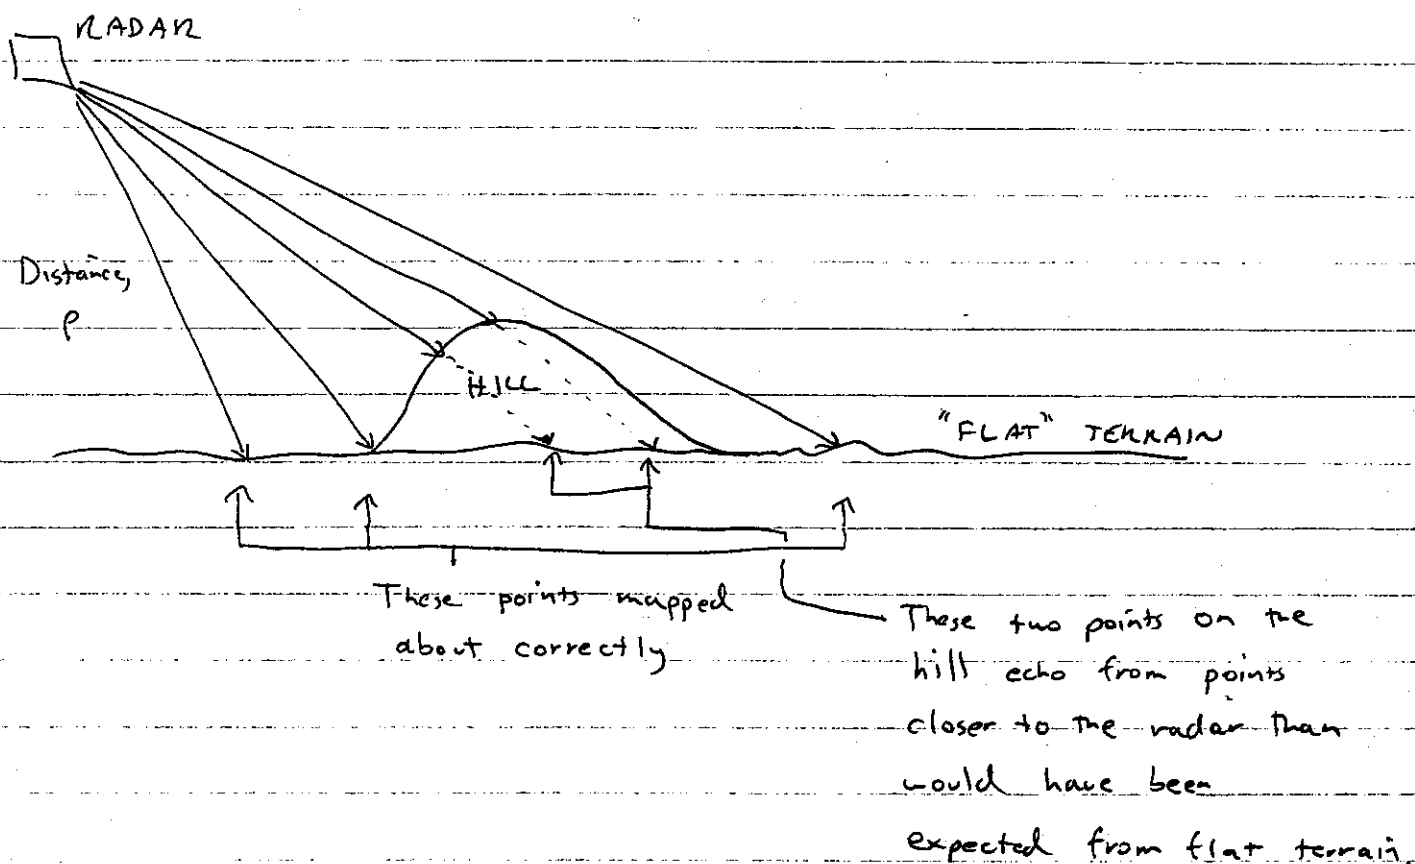 RADAR
Distance,
ρ
HILL
"FLAT" TERRAIN
These points mapped
about correctly
These two points on the
hill echo from points
closer to the radar than
would have been
expected from flat terrain.